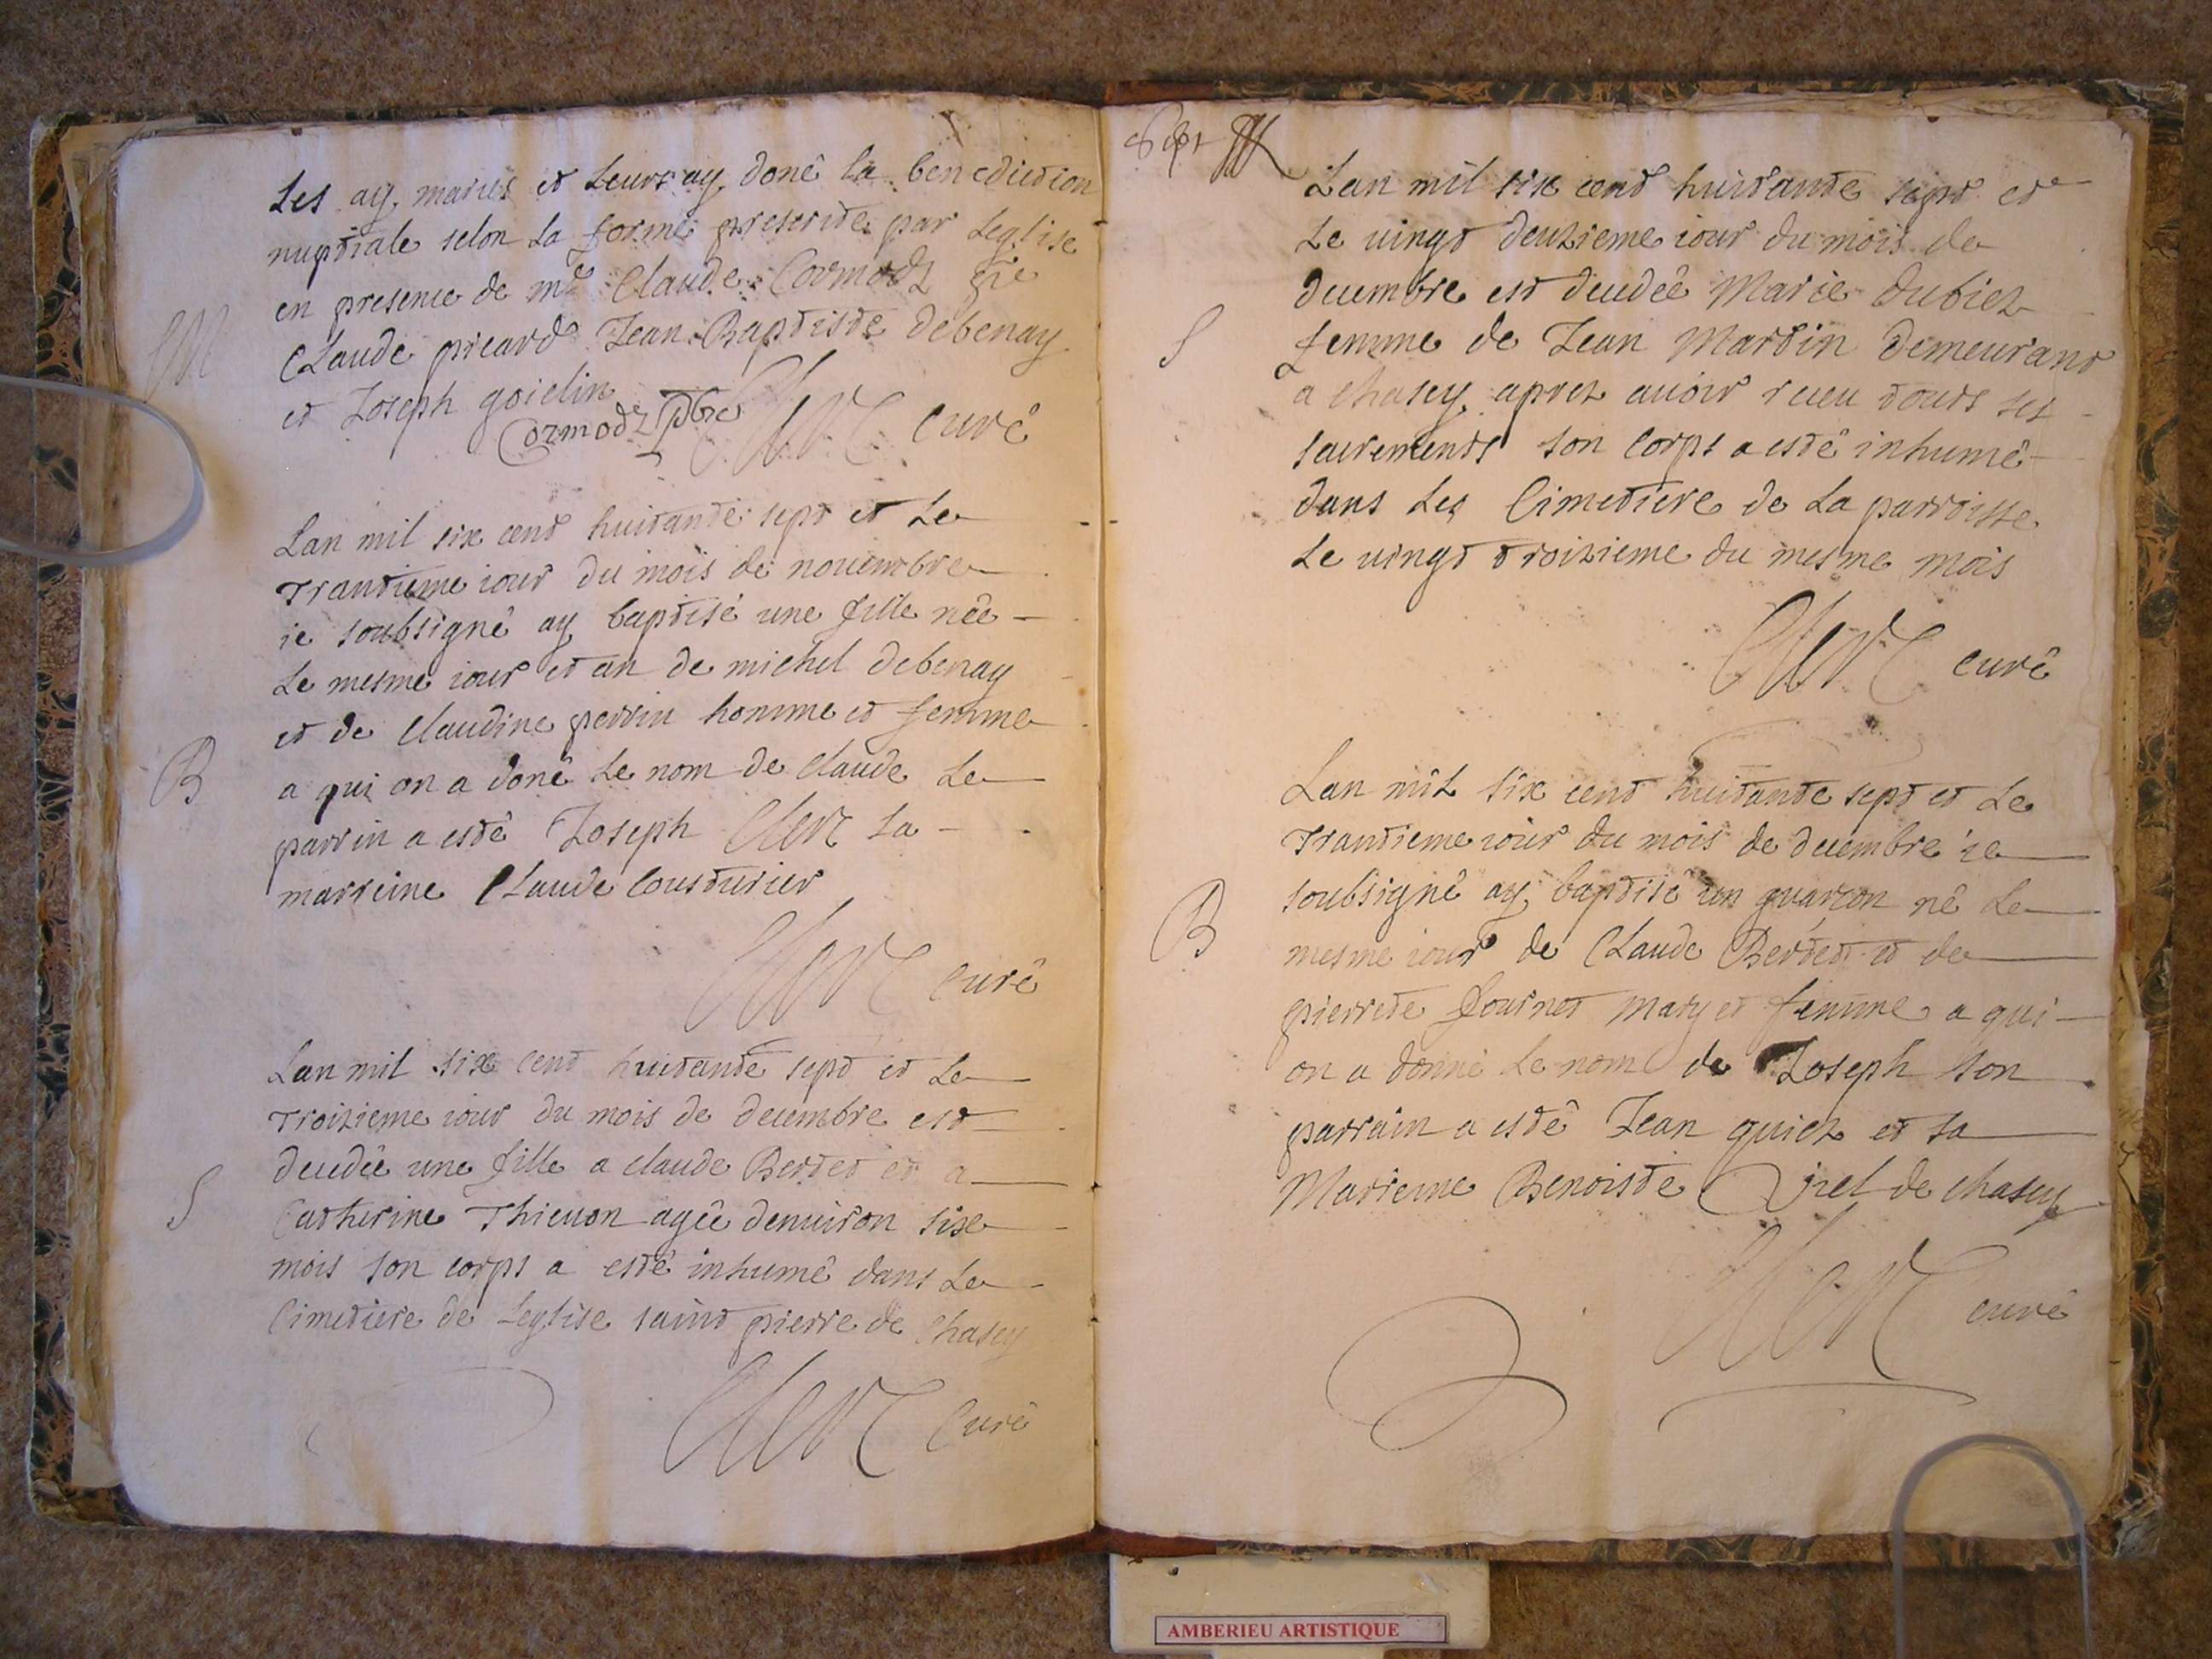 Les ay mariés et Leurs ay donê la benediction
nuptiale selon La forme prescrite par Leglise
en presence de mre Claude Cormodz
Claude picard Jean Baptiste debenay
et Joseph goielin
Cormodz pbre Clerc curê
M
Lan mil six cent huitante sept et Le
Trantieme iour du mois de nouembre
ie soubsignê ay baptisé une fille nêe
Le mesme iour et an de michel debenay
et de Claudine perrin homme et femme
B
a qui on a donê Le nom de Claude Le
parrin a estê Joseph Clerc La
marreine Claude Cousturier
Clerc Curê
Lan mil six cent huitante sept et Le
Troizieme iour du mois de decembre est
decedêe une fille a Claude Bertet et a
S
Catherine Thieuon agêe denuiron six
mois son corps a estê inhumê dans Le
Cimetiere de Leglise saint pierre de Chasey
Clerc Curê
Sept
Lan mil six cent huitante sept et
Le uingt deuzieme iour du mois de
decembre est decedêe Marie dubiez
S
femme de Jean Martin demeurant
a Chasey aprez auoir receu touts ses
sacrements son corps a estê inhumê
dans Les Cimetiere de La parroisse
Le uingt troizieme du mesme mois
Clerc curê
Lan mil six cent huitante sept et Le
Trantieme iour du mois de decembre ie
soubsignê ay baptisê un guarçon nê Le
B
mesme iour de Claude Bertet et de
pierrete fournet mary et femme a qui
on a donnê Le nom de Joseph son
parrain a estê Jean guiez et sa
Marreine Benoiste de Chasey
Clerc curê
AMBERIEU ARTISTIQUE